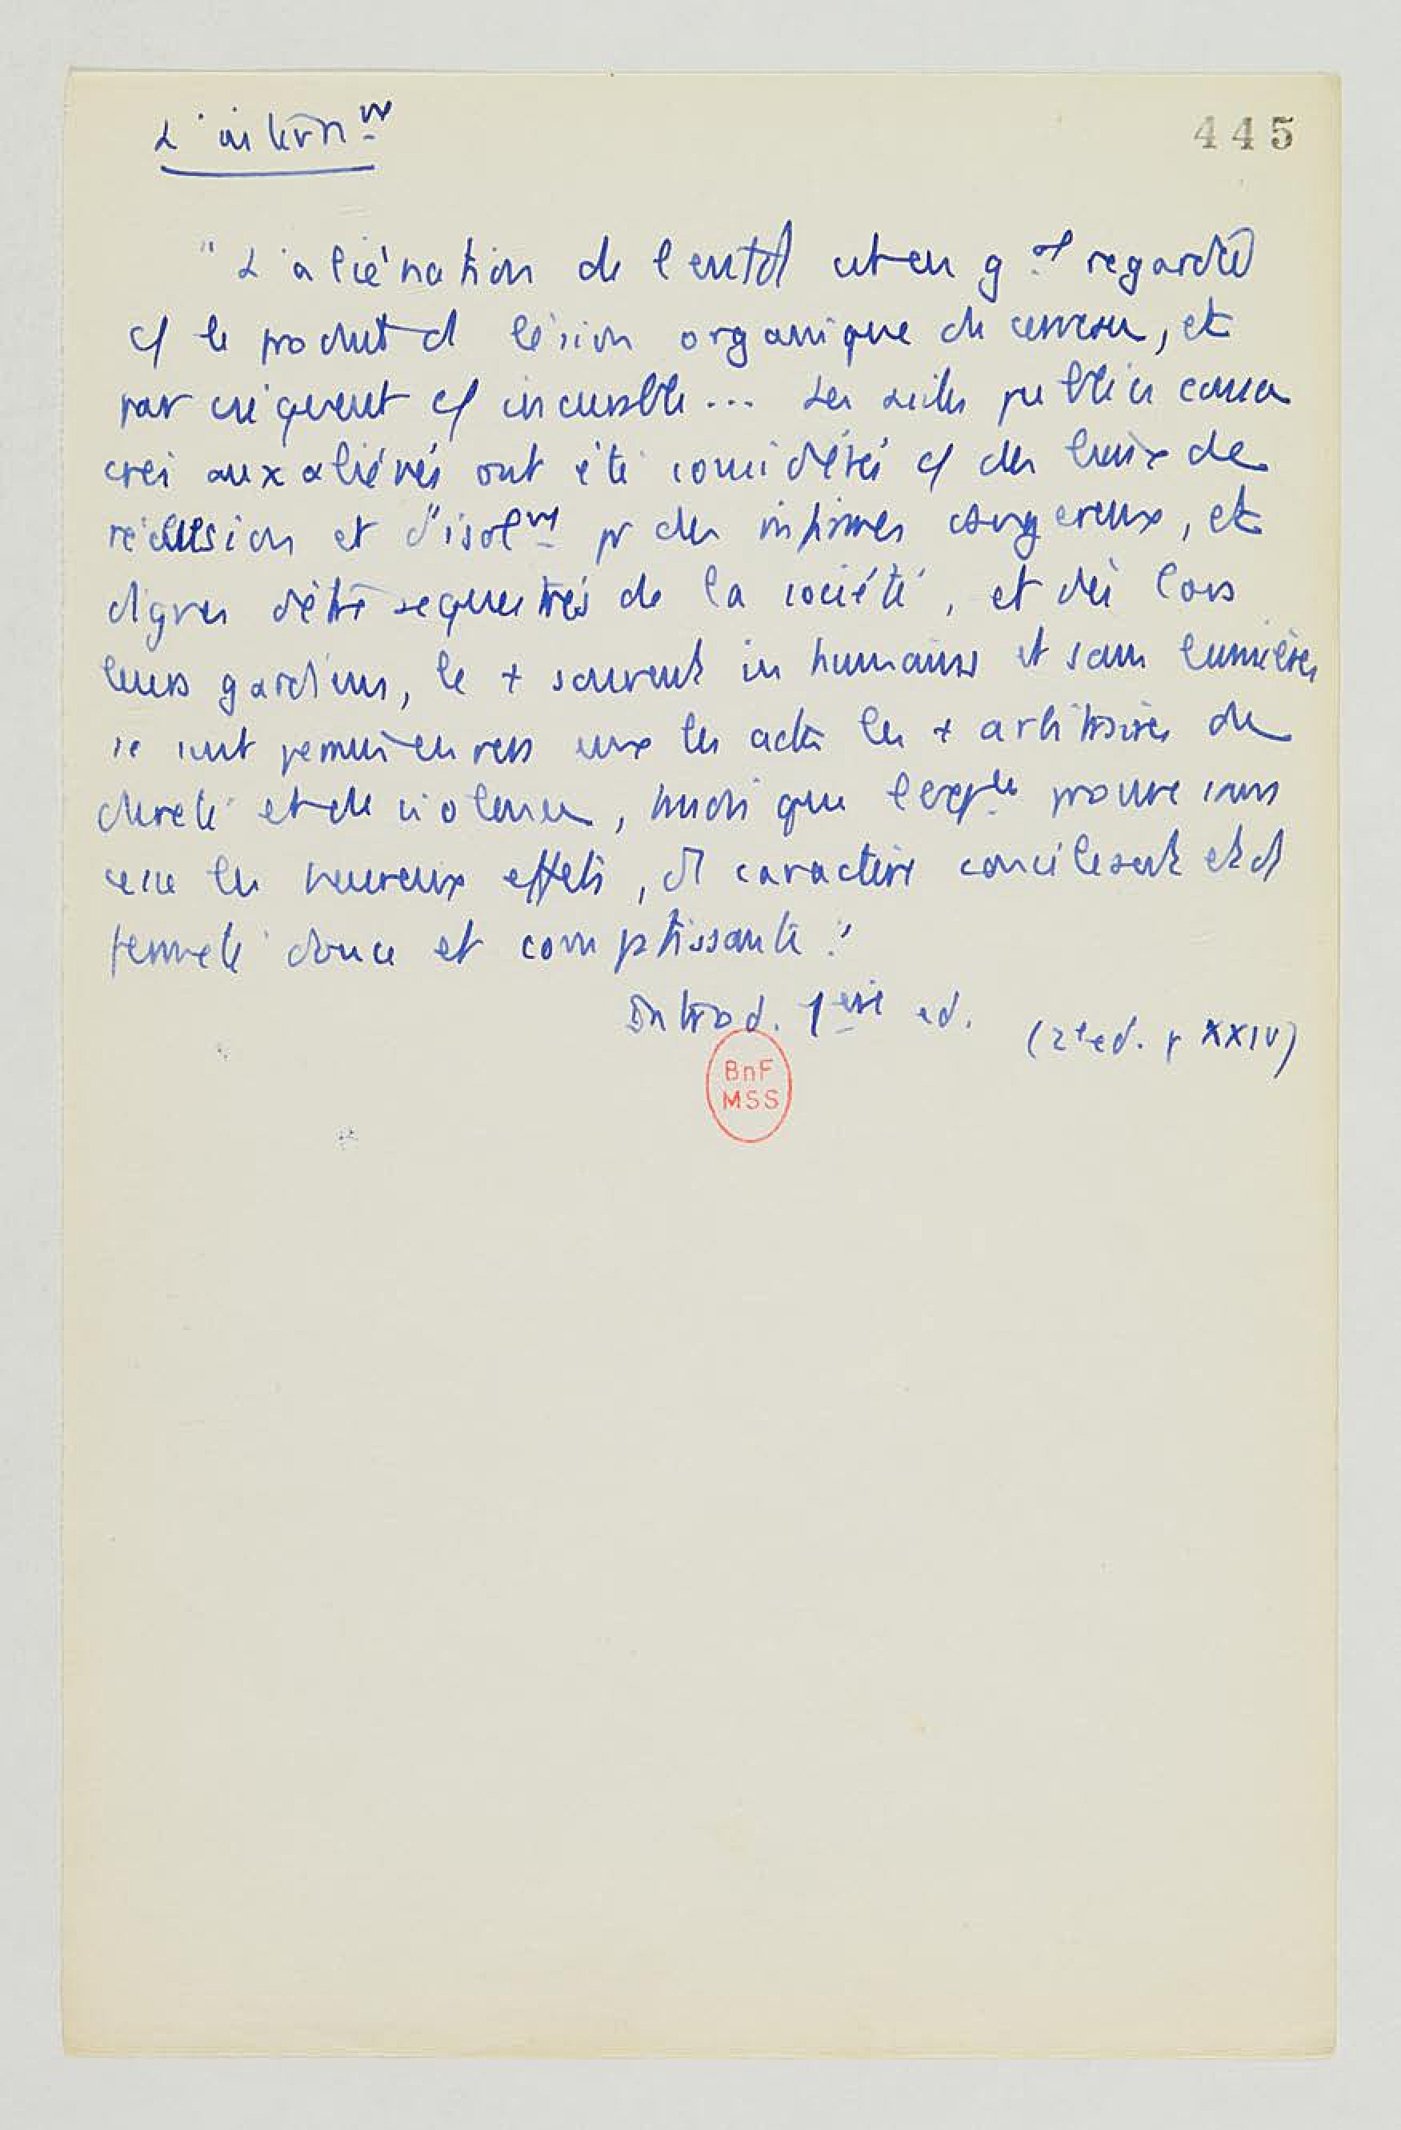 L'intern^nt
445
"L'aliénation de l'entdt est en g^al regardée
cf le produit d lésion organique du cerveau, et
par cséquent cf incurable... Les asiles publics consa
crés aux aliénés ont été considérés cf des lieux de
réclusion et d'isol^nt pr des infirmes dangereux, et
dignes d'être sequestrés de la société, et dès lors
leurs gardiens, le + souvent inhumains et sans lumières
se sont permis envers eux les actes les + arbitraires de
dureté et de violence, tandis que l'exp^ce prouve sans
cesse les heureux effets, d caractère conciliant et d
fermeté douce et compatissante."
Introd. 1ere ed. (2e ed. p XXIV)
BnF
MSS